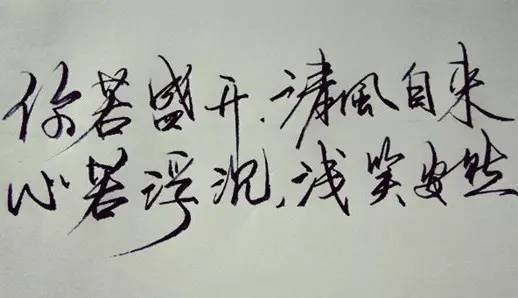 你若盛开.清風自来
心若浮沉,浅笑安然